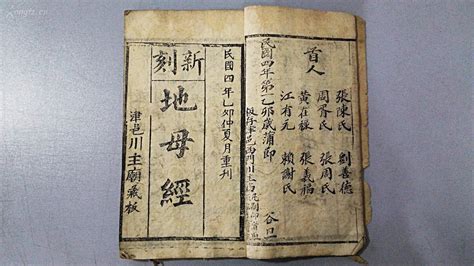 首人
張陳氏 劉善德
周胥氏 張周氏
黃在 張義福
江有元 賴謝氏
民國四年第一乙卯歲蒲節 谷旦
民國四年乙卯仲夏月重刊
新刻
地母經
津邑川主廟藏板